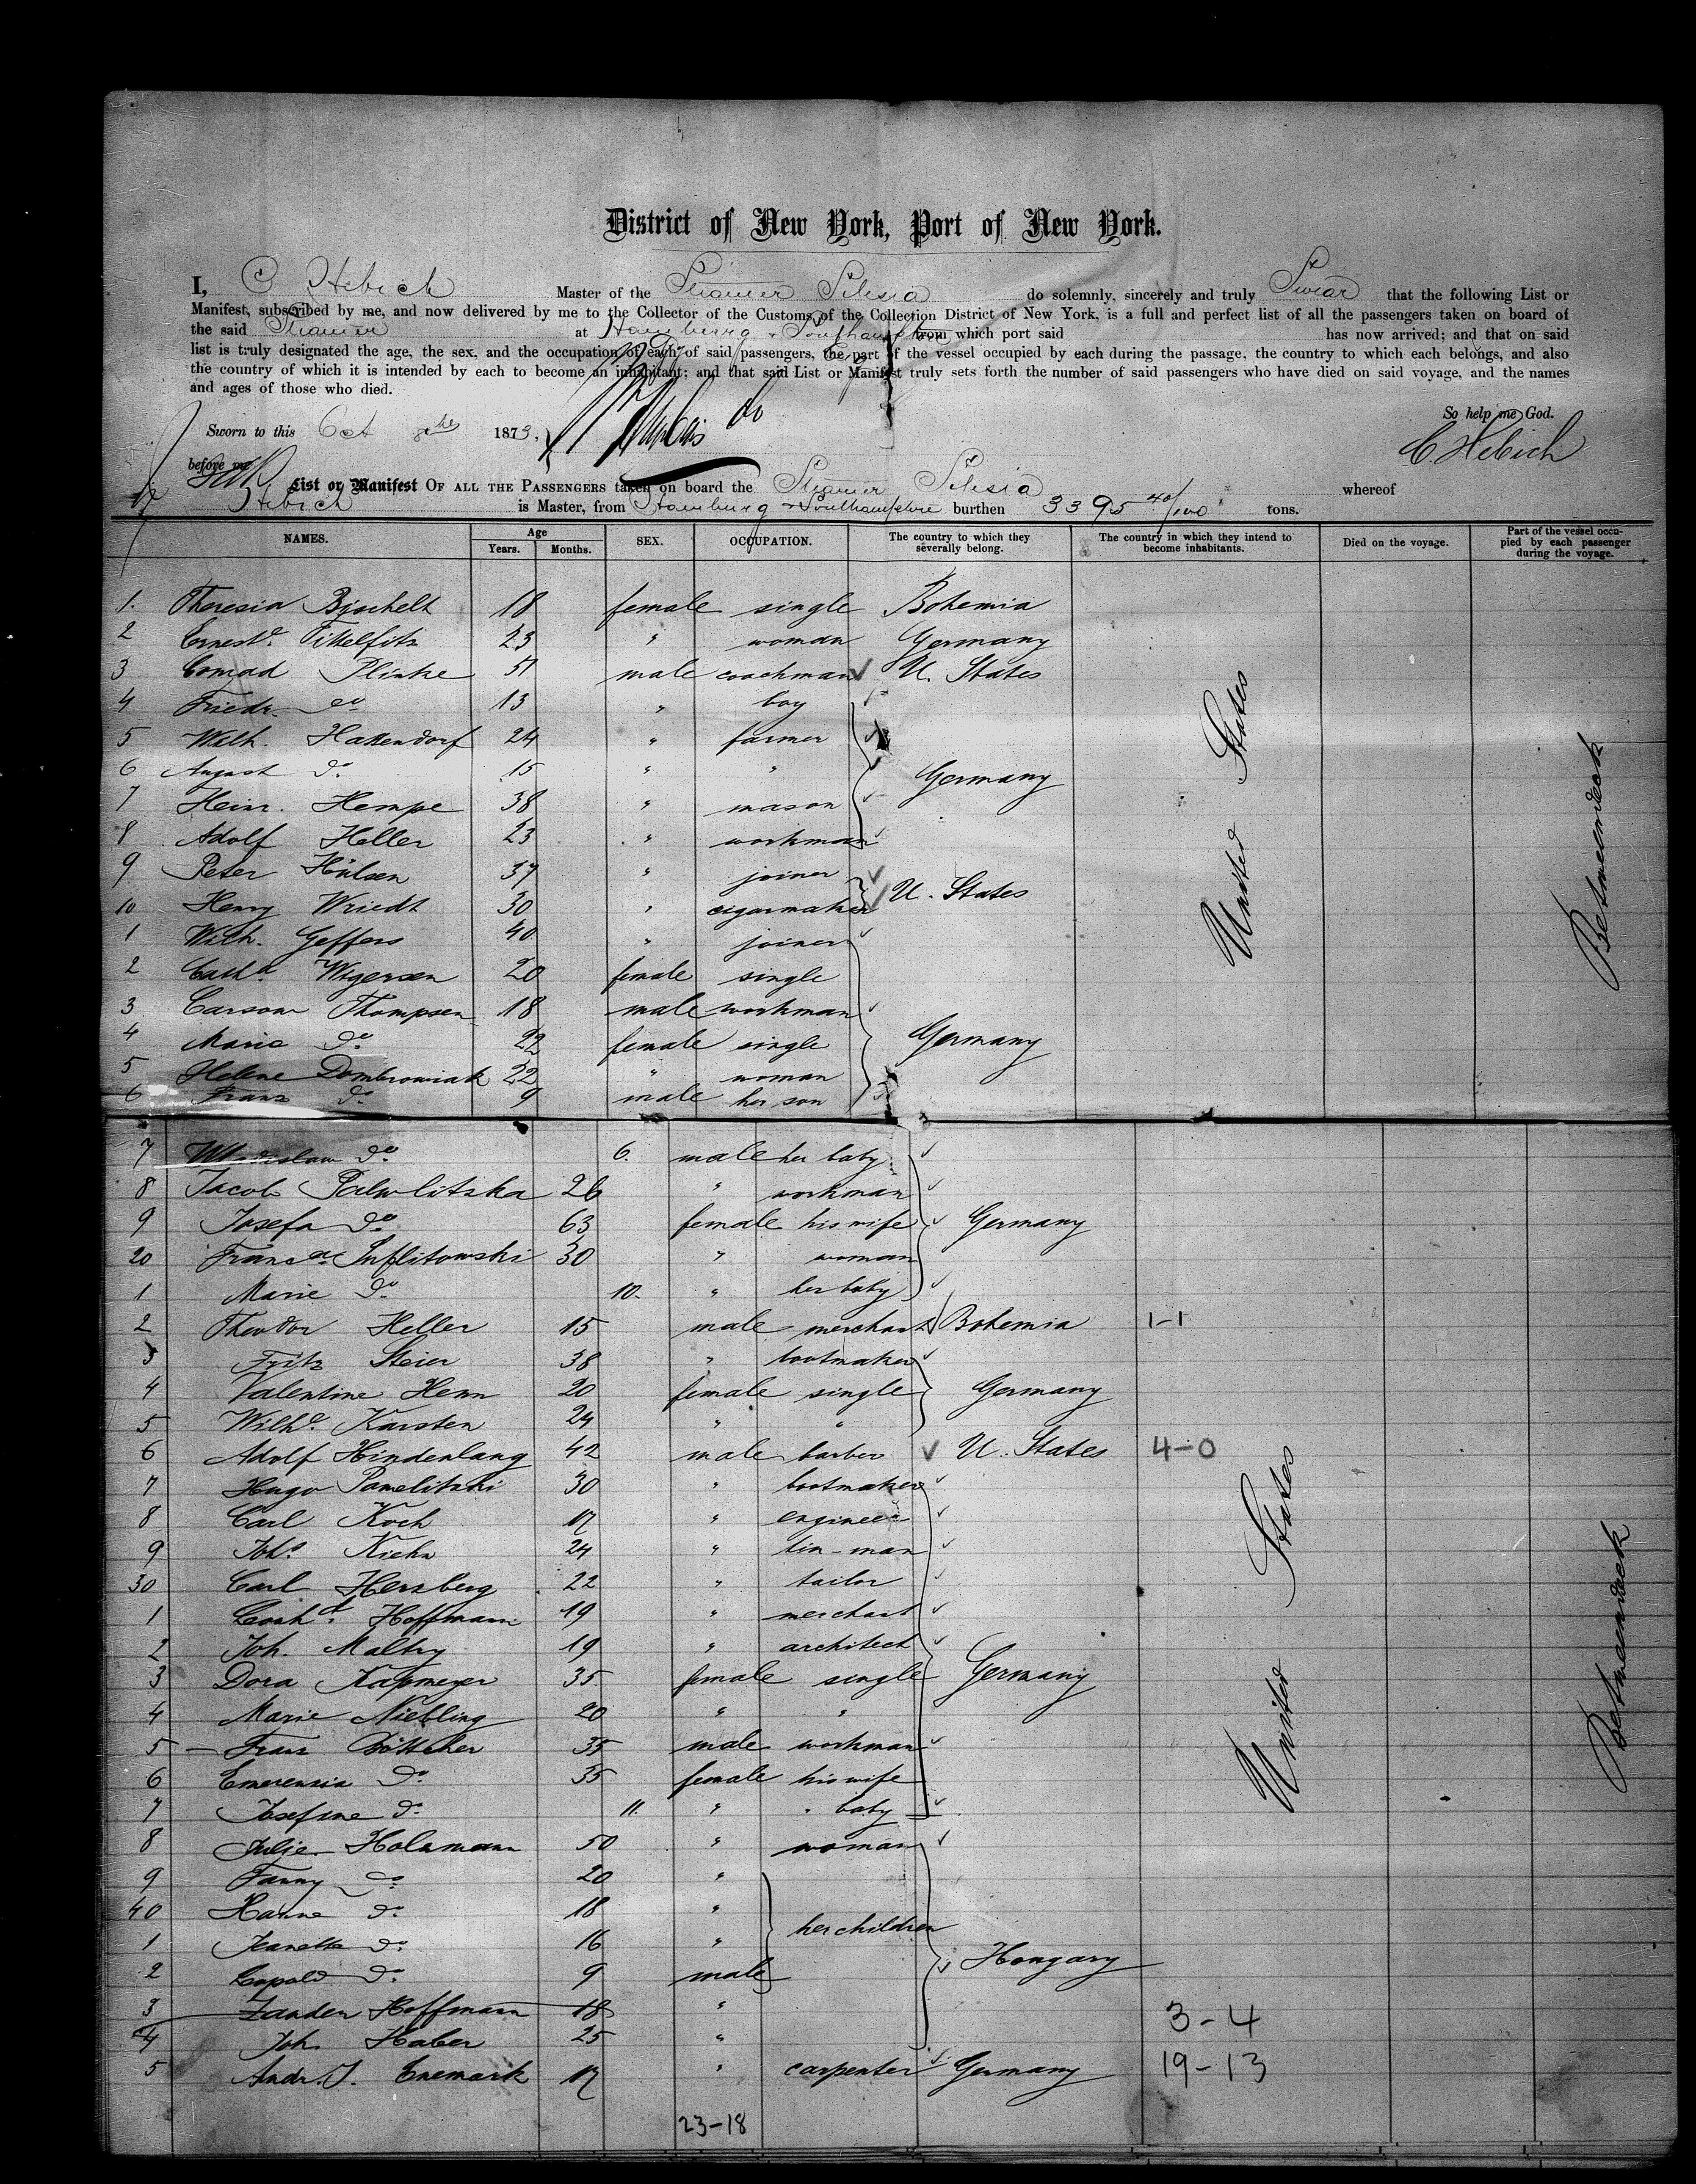 District of New York, Port of New York.
I, C Hebich Master of the Steamer Silesia do solemnly, sincerely and truly Swear that the following List or
Manifest, subscribed by me, and now delivered by me to the Collector of the Customs of the Collection District of New York, is a full and perfect list of all the passengers taken on board of
the said Steamer at Hamburg & Southampton from which port said has now arrived; and that on said
list is truly designated the age, the sex, and the occupation of each of said passengers, the part of the vessel occupied by each during the passage, the country to which each belongs, and also
the country of which it is intended by each to become an inhabitant; and that said List or Manifest truly sets forth the number of said passengers who have died on said voyage, and the names
and ages of those who died.
So help me God.
Sworn to this Oct 8the 1873,
C. Hebich
before me
List or Manifest OF ALL THE PASSENGERS taken on board the Steamer Silesia whereof
Hebich is Master, from Hamburg & Southampton burthen 3395 40/100 tons.
NAMES. Age Years. Months. SEX. OCCUPATION. The country to which they severally belong. The country in which they intend to become inhabitants. Died on the voyage. Part of the vessel occupied by each passenger during the voyage.
1. Theresia Bischelt 18 female single Bohemia
2 Ernest.e Tittelfitz 23 " woman Germany
3 Conrad Plinke 51 male coachman U. States
4 Friedr. do 13 " boy
5 Wilh. Hattendorf 24 " farmer
6 August do 15 " "
Germany
7 Heinr. Hempe 38 " mason
8 Adolf Heller 23 " workman
9 Peter Hülsen 37 " joiner
U. States
10 Henry Wriedt 30 " cigarmaker
1 Wilh. Geffers 40 " joiner
2 Cath.a Wigersen 20 female single
3 Carsow Thompsen 18 male workman
4 Marie do 22 female single
Germany
5 Helene Dombrowiak 22 " woman
6 Franz do 9 male her son
United States
Betweendeck
7 Wladislaw do 6. male her baby
8 Jacob Pawlitzka 26 " workman
9 Josefa do 63 female his wife Germany
20 Franc.ae Inflitowski 30 " woman
1 Marie do 10. " her baby
2 Theodor Heller 15 male merchant Bohemia 1-1
3 Fritz Steier 38 " bootmaker
4 Valentine Henn 20 female single Germany
5 Wilh.e Karsten 24 " "
6 Adolf Hindenlang 42 male barber U. States 4-0
7 Hugo Pamelitzki 30 " bootmaker
8 Carl Koch 17 " engineer
9 Joh.s Kiehn 24 " tin-man
30 Carl Herzberg 22 " tailor
1 Hoffmann 19 " merchant
2 Joh. Maltry 19 " architect
3 Dora Kapmeyer 35 female single Germany
4 Marie Niebling 20 " "
5 Franz Böttcher 35 male workman
6 Emerensia do 35 female his wife
7 Josefine do 11. " " baby
8 Julie Holzmann 50 " woman
9 Fanny do 20 "
40 Hanne do 18 "
her children
1 Jeanette do 16 "
Hongary
2 Leopold do 9 male
3 Zander Hoffmann 18 "
3-4
4 Joh. Haber 25 "
5 Andr. J. Enemark 17 " carpenter Germany 19-13
United States
Betweendeck
23-18